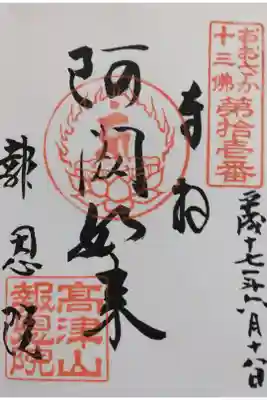 おおさか
十三佛
第拾壱番
奉拝
平成十七年八月十八日
阿閦如来
報恩院
高津山
報恩院